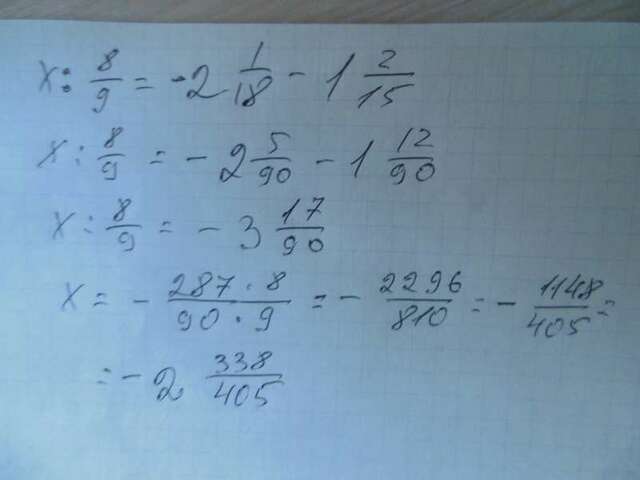 x : 8/9 = -2 1/18 - 1 2/15
x : 8/9 = - 2 5/90 - 1 12/90
x : 8/9 = - 3 17/90
x = - 287 · 8 / 90 · 9 = - 2296/810 = - 1148/405 =
= - 2 338/405